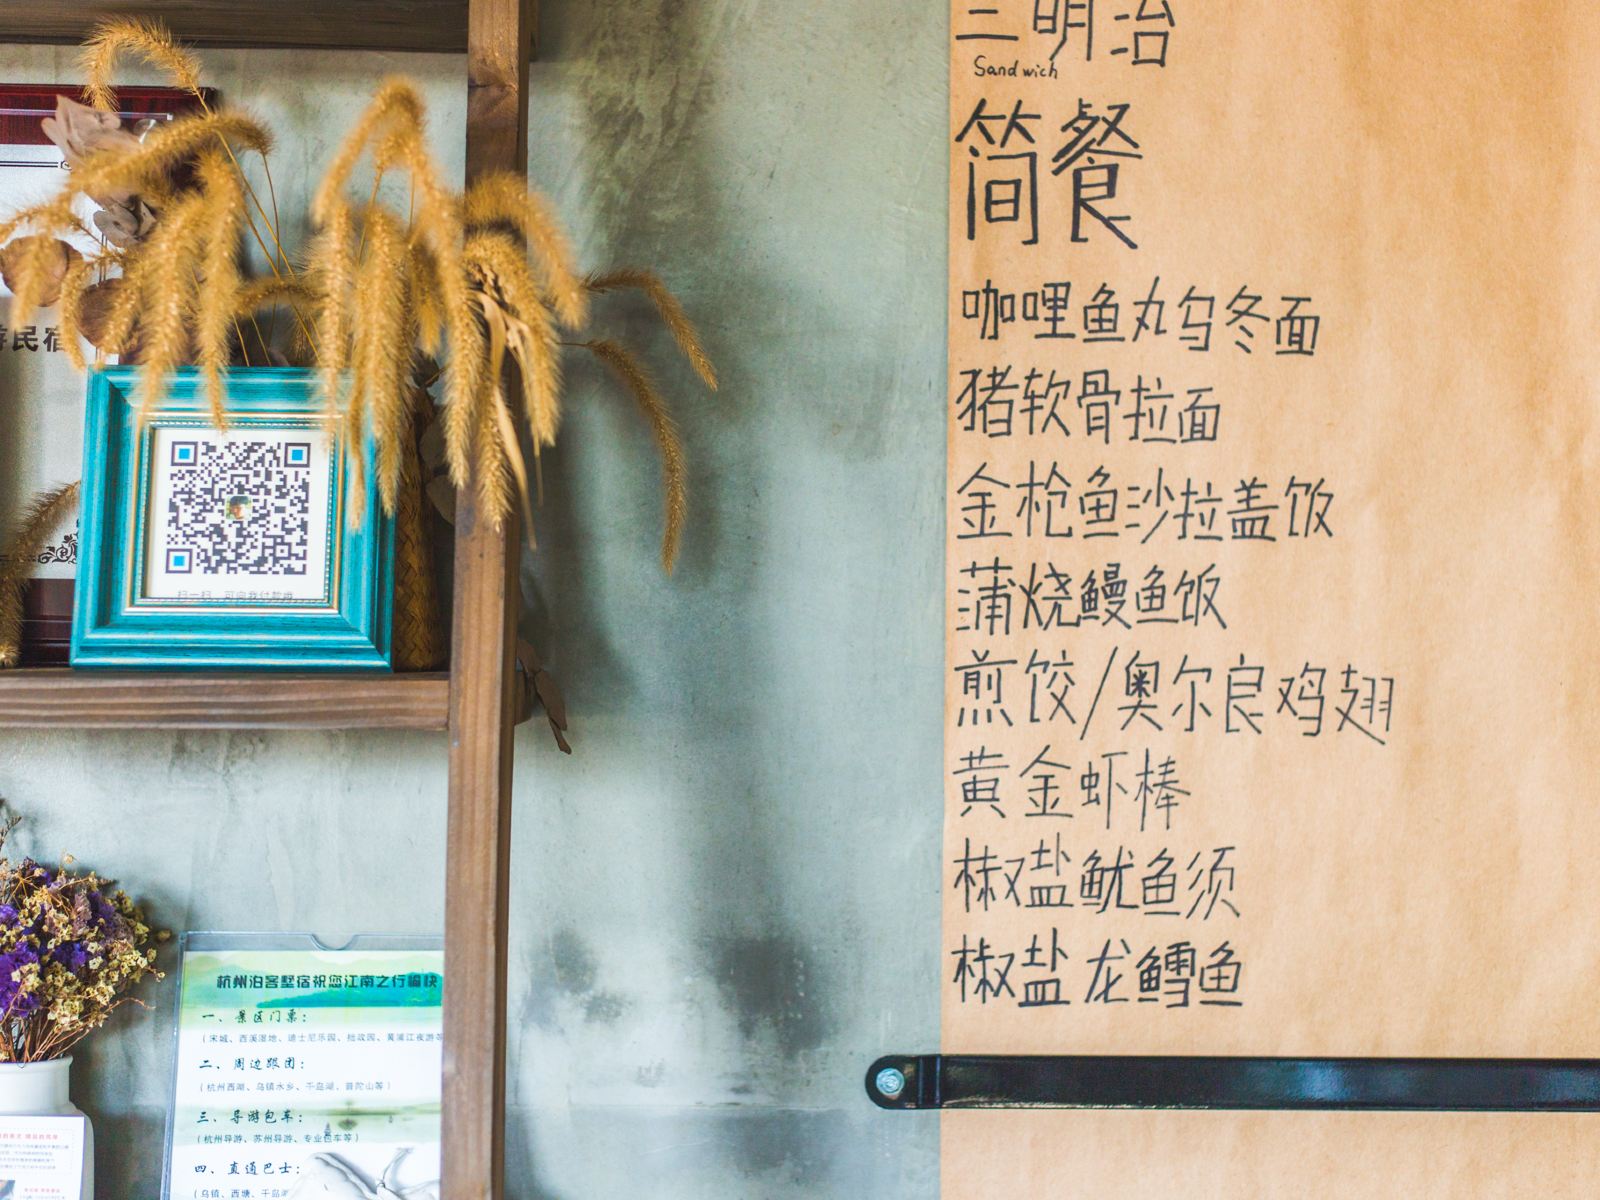 三明治
Sandwich
简餐
咖哩鱼丸乌冬面
猪软骨拉面
金枪鱼沙拉盖饭
蒲烧鳗鱼饭
煎饺/奥尔良鸡翅
黄金虾棒
椒盐鱿鱼须
椒盐龙鳕鱼
民宿
扫一扫，可向我付款哦
杭州泊客墅宿祝您江南之行愉快
一、景区门票：
（宋城、西溪湿地、迪士尼乐园、拙政园、黄浦江夜游等
二、周边跟团：
（杭州西湖、乌镇水乡、千岛湖、普陀山等）
三、导游包车：
（杭州导游、苏州导游、专业包车等）
四、直通巴士：
（乌镇、西塘、千岛湖